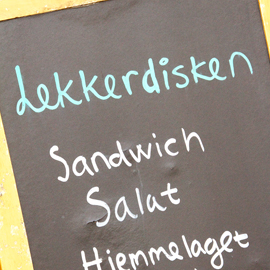 Lekkerdisken
Sandwich
Salat
Hjemmelaget